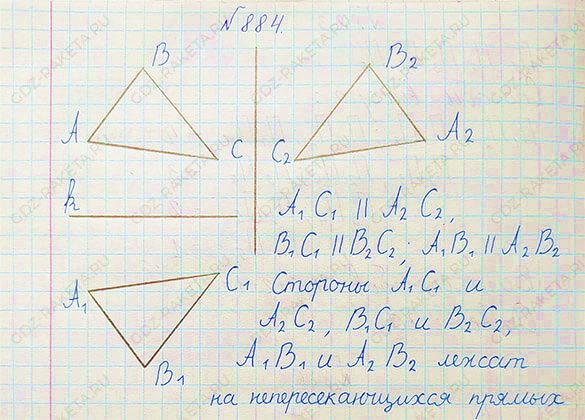 №884.
B
B₂
A
C
C₂
A₂
k
A₁ C₁ || A₂ C₂,
B₁C₁ || B₂C₂; A₁B₁ || A₂B₂
A₁
C₁
B₁
Стороны A₁C₁ и
A₂C₂, B₁C₁ и B₂C₂,
A₁B₁ и A₂B₂ лежат
на непересекающихся прямых
GDZ-RAKETA.RU